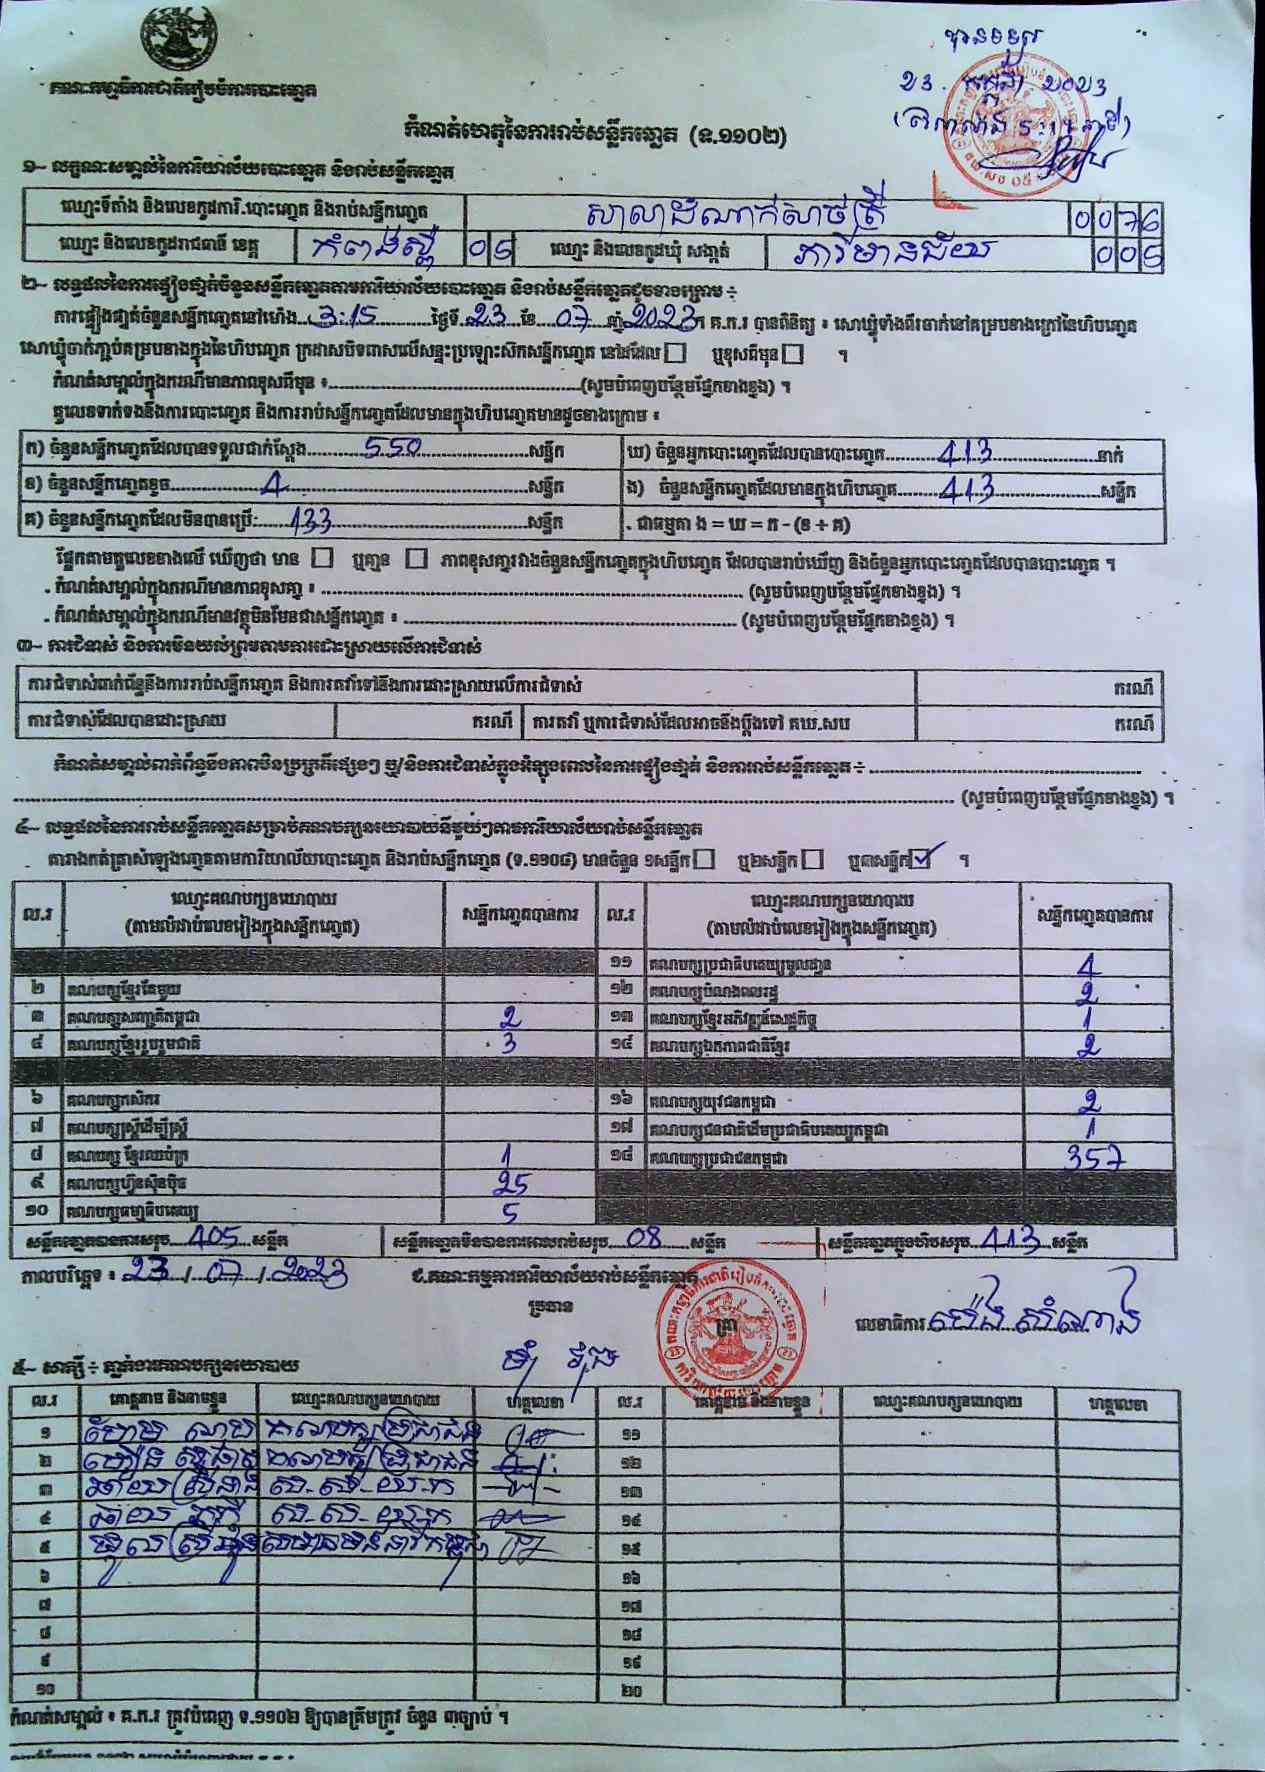 គណៈកម្មាធិការជាតិរៀបចំការបោះឆ្នោត
បានទទួល
23. កក្កដា 2023
កំណត់ហេតុនៃការរាប់សន្លឹកឆ្នោត (ទ.១១០២)
១- លក្ខណៈសម្គាល់នៃការិយាល័យបោះឆ្នោត និងរាប់សន្លឹកឆ្នោត
ឈ្មោះទីតាំង និងលេខកូដការិ.បោះឆ្នោត និងរាប់សន្លឹកឆ្នោត សាលាដំណាក់សាច់ត្រី 0076
ឈ្មោះ និងលេខកូដរាជធានី ខេត្ត កំពង់ស្ពឺ 05 ឈ្មោះ និងលេខកូដឃុំ សង្កាត់ ភារីមានជ័យ 005
២- លទ្ធផលនៃការផ្ទៀងផ្ទាត់ចំនួនសន្លឹកឆ្នោតតាមការិយាល័យបោះឆ្នោត និងរាប់សន្លឹកឆ្នោតដូចខាងក្រោម ៖
ការផ្ទៀងផ្ទាត់ចំនួនសន្លឹកឆ្នោតនៅម៉ោង 3:15 ថ្ងៃទី 23 ខែ 07 ឆ្នាំ 2023។ គ.ក.រ បានពិនិត្យ ៖ សោឃ្មុំទាំងពីរចាក់នៅគម្របខាងក្រៅនៃហិបឆ្នោត
សោឃ្មុំចាក់ភ្ជាប់គម្របខាងក្នុងនៃហិបឆ្នោត ក្រដាសបិទពាសលើសន្ទះប្រឡោះស៊កសន្លឹកឆ្នោត នៅដដែល ☐ ឬខុសពីមុន ☐ ។
កំណត់សម្គាល់ក្នុងករណីមានភាពខុសពីមុន ៖ (សូមបំពេញបន្ថែមផ្នែកខាងខ្នង) ។
តួលេខទាក់ទងនឹងការបោះឆ្នោត និងការរាប់សន្លឹកឆ្នោតដែលមានក្នុងហិបឆ្នោតមានដូចខាងក្រោម ៖
ក) ចំនួនសន្លឹកឆ្នោតដែលបានទទួលជាក់ស្តែង 550 សន្លឹក ឃ) ចំនួនអ្នកបោះឆ្នោតដែលបានបោះឆ្នោត 413 នាក់
ខ) ចំនួនសន្លឹកឆ្នោតខូច 4 សន្លឹក ង) ចំនួនសន្លឹកឆ្នោតដែលមានក្នុងហិបឆ្នោត 413 សន្លឹក
គ) ចំនួនសន្លឹកឆ្នោតដែលមិនបានប្រើ 133 សន្លឹក . ជាធម្មតា ង = ឃ = ក - (ខ + គ)
ផ្អែកតាមតួលេខខាងលើ ឃើញថា មាន ☐ ឬគ្មាន ☐ ភាពខុសគ្នារវាងចំនួនសន្លឹកឆ្នោតក្នុងហិបឆ្នោត ដែលបានរាប់ឃើញ និងចំនួនអ្នកបោះឆ្នោតដែលបានបោះឆ្នោត ។
. កំណត់សម្គាល់ក្នុងករណីមានភាពខុសគ្នា ៖ (សូមបំពេញបន្ថែមផ្នែកខាងខ្នង) ។
. កំណត់សម្គាល់ក្នុងករណីមានវត្ថុមិនមែនជាសន្លឹកឆ្នោត ៖ (សូមបំពេញបន្ថែមផ្នែកខាងខ្នង) ។
៣- ការជំទាស់ និងការមិនយល់ព្រមតាមការដោះស្រាយលើការជំទាស់
ការជំទាស់ពាក់ព័ន្ធនឹងការរាប់សន្លឹកឆ្នោត និងការតវ៉ាទៅនឹងការដោះស្រាយលើការជំទាស់ ករណី
ការជំទាស់ដែលបានដោះស្រាយ ករណី ការតវ៉ា ឬការជំទាស់ដែលអាចនឹងប្តឹងទៅ គឃ.សប ករណី
កំណត់សម្គាល់ពាក់ព័ន្ធនឹងភាពមិនប្រក្រតីផ្សេងៗ ឬ/និងការជំទាស់ក្នុងអំឡុងពេលនៃការផ្ទៀងផ្ទាត់ និងការរាប់សន្លឹកឆ្នោត ៖
(សូមបំពេញបន្ថែមផ្នែកខាងខ្នង) ។
៤- លទ្ធផលនៃការរាប់សន្លឹកឆ្នោតសម្រាប់គណបក្សនយោបាយនីមួយៗតាមការិយាល័យរាប់សន្លឹកឆ្នោត
តារាងកត់ត្រាសំឡេងឆ្នោតតាមការិយាល័យបោះឆ្នោត និងរាប់សន្លឹកឆ្នោត (ទ.១១០៨) មានចំនួន ១សន្លឹក ☐ ឬ២សន្លឹក ☐ ឬ៣សន្លឹក ☑ ។
ល.រ ឈ្មោះគណបក្សនយោបាយ (តាមលំដាប់លេខរៀងក្នុងសន្លឹកឆ្នោត) សន្លឹកឆ្នោតបានការ ល.រ ឈ្មោះគណបក្សនយោបាយ (តាមលំដាប់លេខរៀងក្នុងសន្លឹកឆ្នោត) សន្លឹកឆ្នោតបានការ
១១ គណបក្សប្រជាធិបតេយ្យមូលដ្ឋាន 4
២ គណបក្សខ្មែរតែមួយ ១២ គណបក្សបំណងពលរដ្ឋ 2
៣ គណបក្សសញ្ជាតិកម្ពុជា 2 ១៣ គណបក្សខ្មែរអភិវឌ្ឍន៍សេដ្ឋកិច្ច 1
៤ គណបក្សខ្មែររួបរួមជាតិ 3 ១៤ គណបក្សឯកភាពជាតិខ្មែរ 2
៦ គណបក្សកសិករ ១៦ គណបក្សយុវជនកម្ពុជា 2
៧ គណបក្សស្ត្រីដើម្បីស្ត្រី ១៧ គណបក្សជនជាតិដើមប្រជាធិបតេយ្យកម្ពុជា 1
៨ គណបក្ស ខ្មែរឈប់ក្រ 1 ១៨ គណបក្សប្រជាជនកម្ពុជា 357
៩ គណបក្សហ៊្វុនស៊ិនប៉ិច 25
១០ គណបក្សធម្មាធិបតេយ្យ 5
សន្លឹកឆ្នោតបានការសរុប 405 សន្លឹក សន្លឹកឆ្នោតមិនបានការពេលរាប់សរុប 08 សន្លឹក សន្លឹកឆ្នោតក្នុងហិបសរុប 413 សន្លឹក
កាលបរិច្ឆេទ ៖ 23 / 07 / 2023 ជ.គណៈកម្មការការិយាល័យរាប់សន្លឹកឆ្នោត
ប្រធាន ត្រា លេខាធិការ ម៉េង សំណាង
៥- សាក្សី ៖ ភ្នាក់ងារគណបក្សនយោបាយ
ល.រ គោត្តនាម និងនាមខ្លួន ឈ្មោះគណបក្សនយោបាយ ហត្ថលេខា ល.រ គោត្តនាម និងនាមខ្លួន ឈ្មោះគណបក្សនយោបាយ ហត្ថលេខា
១ គណបក្សប្រជាជន ១១
២ គណបក្សប្រជាជន ១២
៣ ស.ស.យ.ក ១៣
៤ ស.ស.យ.ក ១៤
៥ ១៥
៦ ១៦
៧ ១៧
៨ ១៨
៩ ១៩
១០ ២០
កំណត់សម្គាល់ ៖ គ.ក.រ ត្រូវបំពេញ ទ.១១០២ ឱ្យបានត្រឹមត្រូវ ចំនួន ៣ច្បាប់ ។